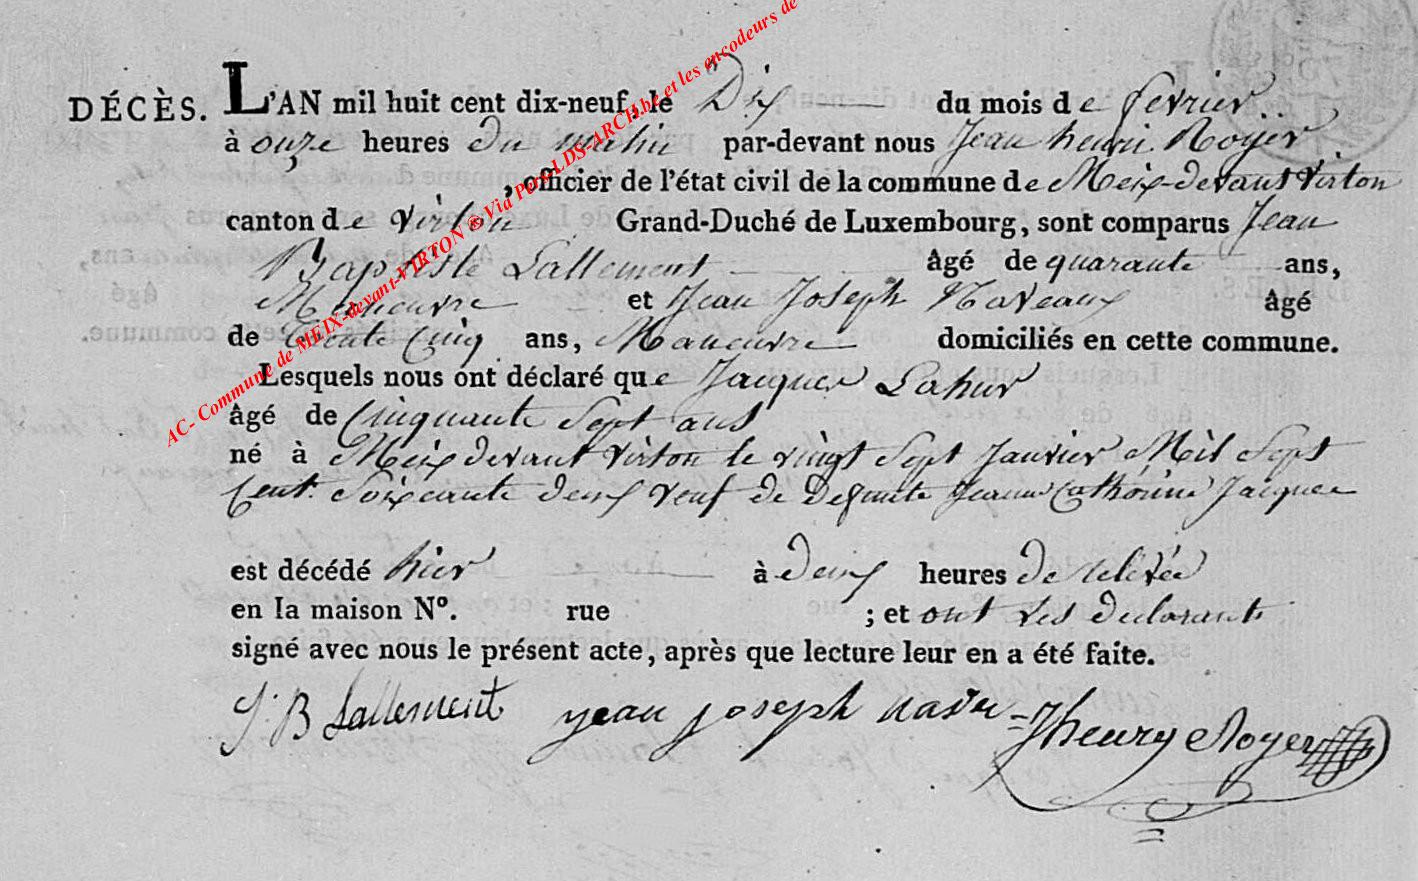 DÉCÈS. L'AN mil huit cent dix-neuf, le Dix du mois de fevrier
à onze heures du matin par-devant nous Jean henri Royer
, officier de l'état civil de la commune de Meix-devant Virton
canton de Virton Grand-Duché de Luxembourg, sont comparus Jean
Baptiste Lallement âgé de quarante ans,
Maneuvre et Jean Joseph Naveaux âgé
de trente Cinq ans, Maneuvre domiciliés en cette commune.
Lesquels nous ont déclaré que Jacques Lahur
âgé de Cinquante Sept ans
né à Meix devant Virton le vingt Sept Janvier Mil Sept
Cent Soixante deux veuf de defunte Jeanne Catherine Jacques
est décédé hier à deux heures de relevée
en la maison N°. rue ; et ont les declarants
signé avec nous le présent acte, après que lecture leur en a été faite.
J. B Lallement jean joseph navau Jhenry Royer
AC- Commune de MEIX-devant-VIRTON ® Via Peter LDS-ARCH.be et les encodeurs de